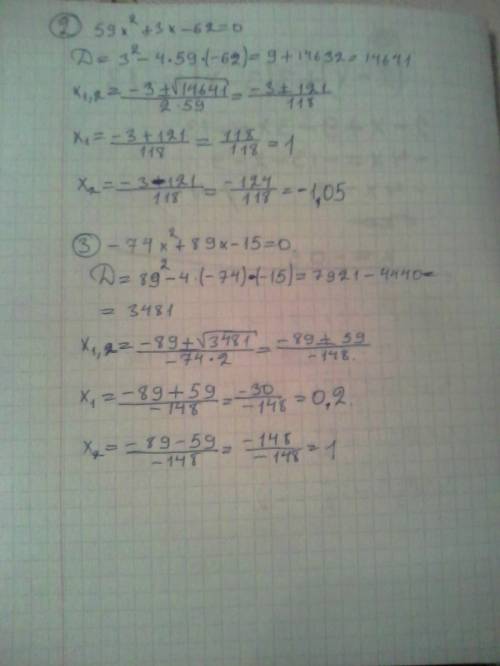 ② 59x²+3x-62=0
D=3²-4·59·(-62)=9+14632=14641
x₁,₂=(-3+√14641)/(2·59)=(-3+121)/118
x₁=(-3+121)/118=118/118=1
x₂=(-3-121)/118=-124/118=-1,05
③ -74x²+89x-15=0
D=89²-4·(-74)·(-15)=7921-4440=
=3481
x₁,₂=(-89+√3481)/(-74·2)=(-89±59)/(-148)
x₁=(-89+59)/(-148)=(-30)/(-148)=0,2.
x₂=(-89-59)/(-148)=(-148)/(-148)=1